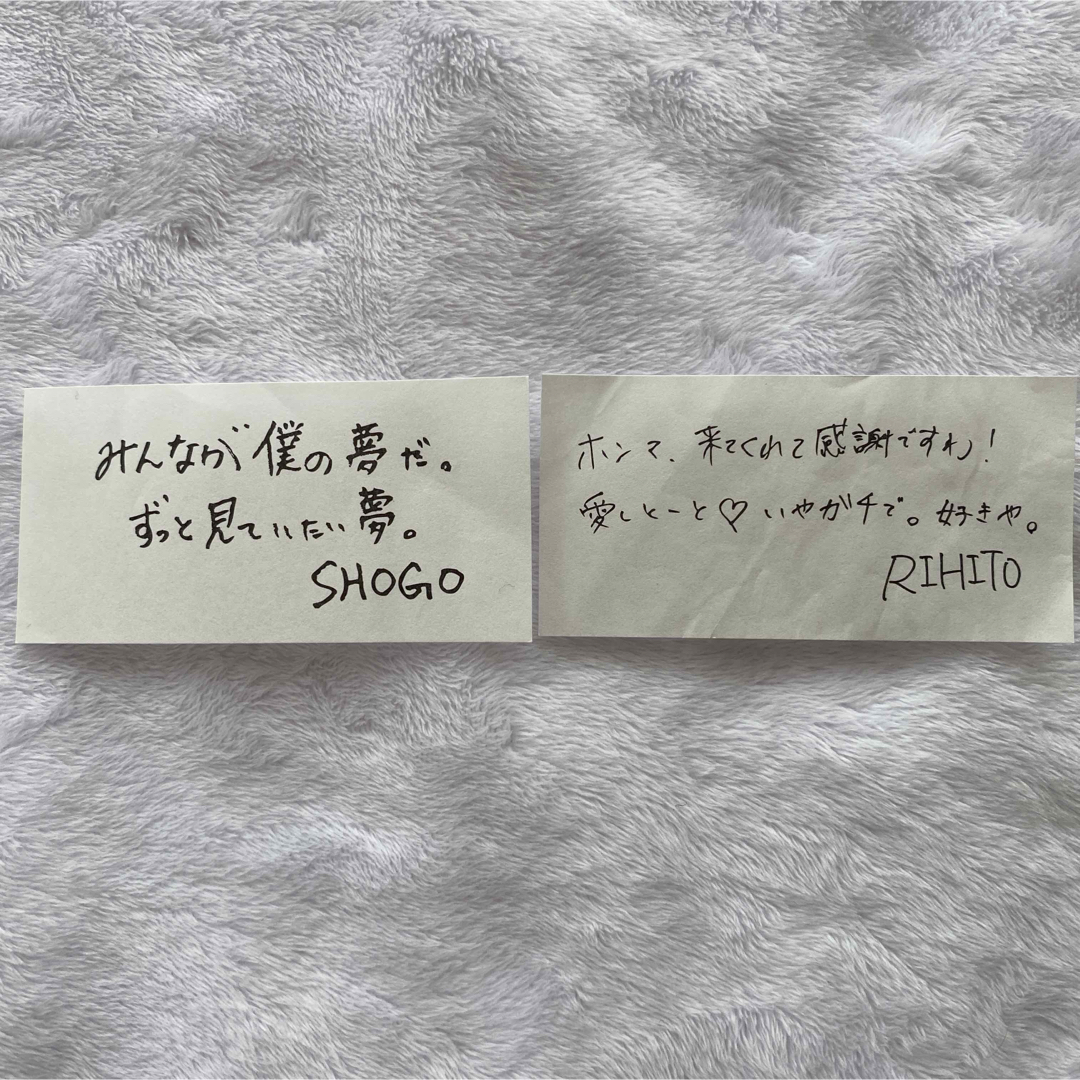 みんなが僕の夢だ。
ずっと見ていたい夢。
SHOGO
ホンマ、来てくれて感謝ですわ!
愛しとーと♡いやガチで。好きや。
RIHITO